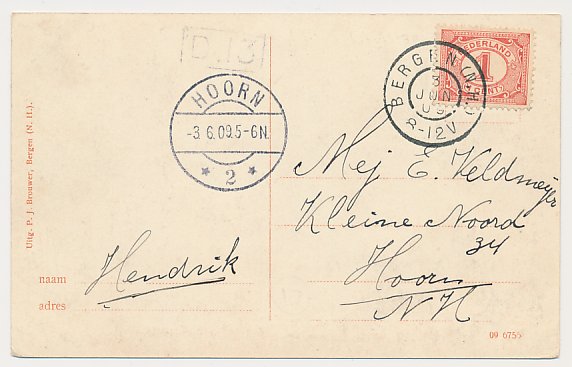 D 13
NEDERLAND
1
CENT
BERGEN (N.H.)
3
JUN
09
8-12V
HOORN
-3.6.09.5-6N.
* 2 *
Mej E. Veldmeijer
Kleine Noord
34
Hoorn
NH
Uitg. P. J. Brouwer, Bergen (N. H.).
naam
Hendrik
adres
09 6755